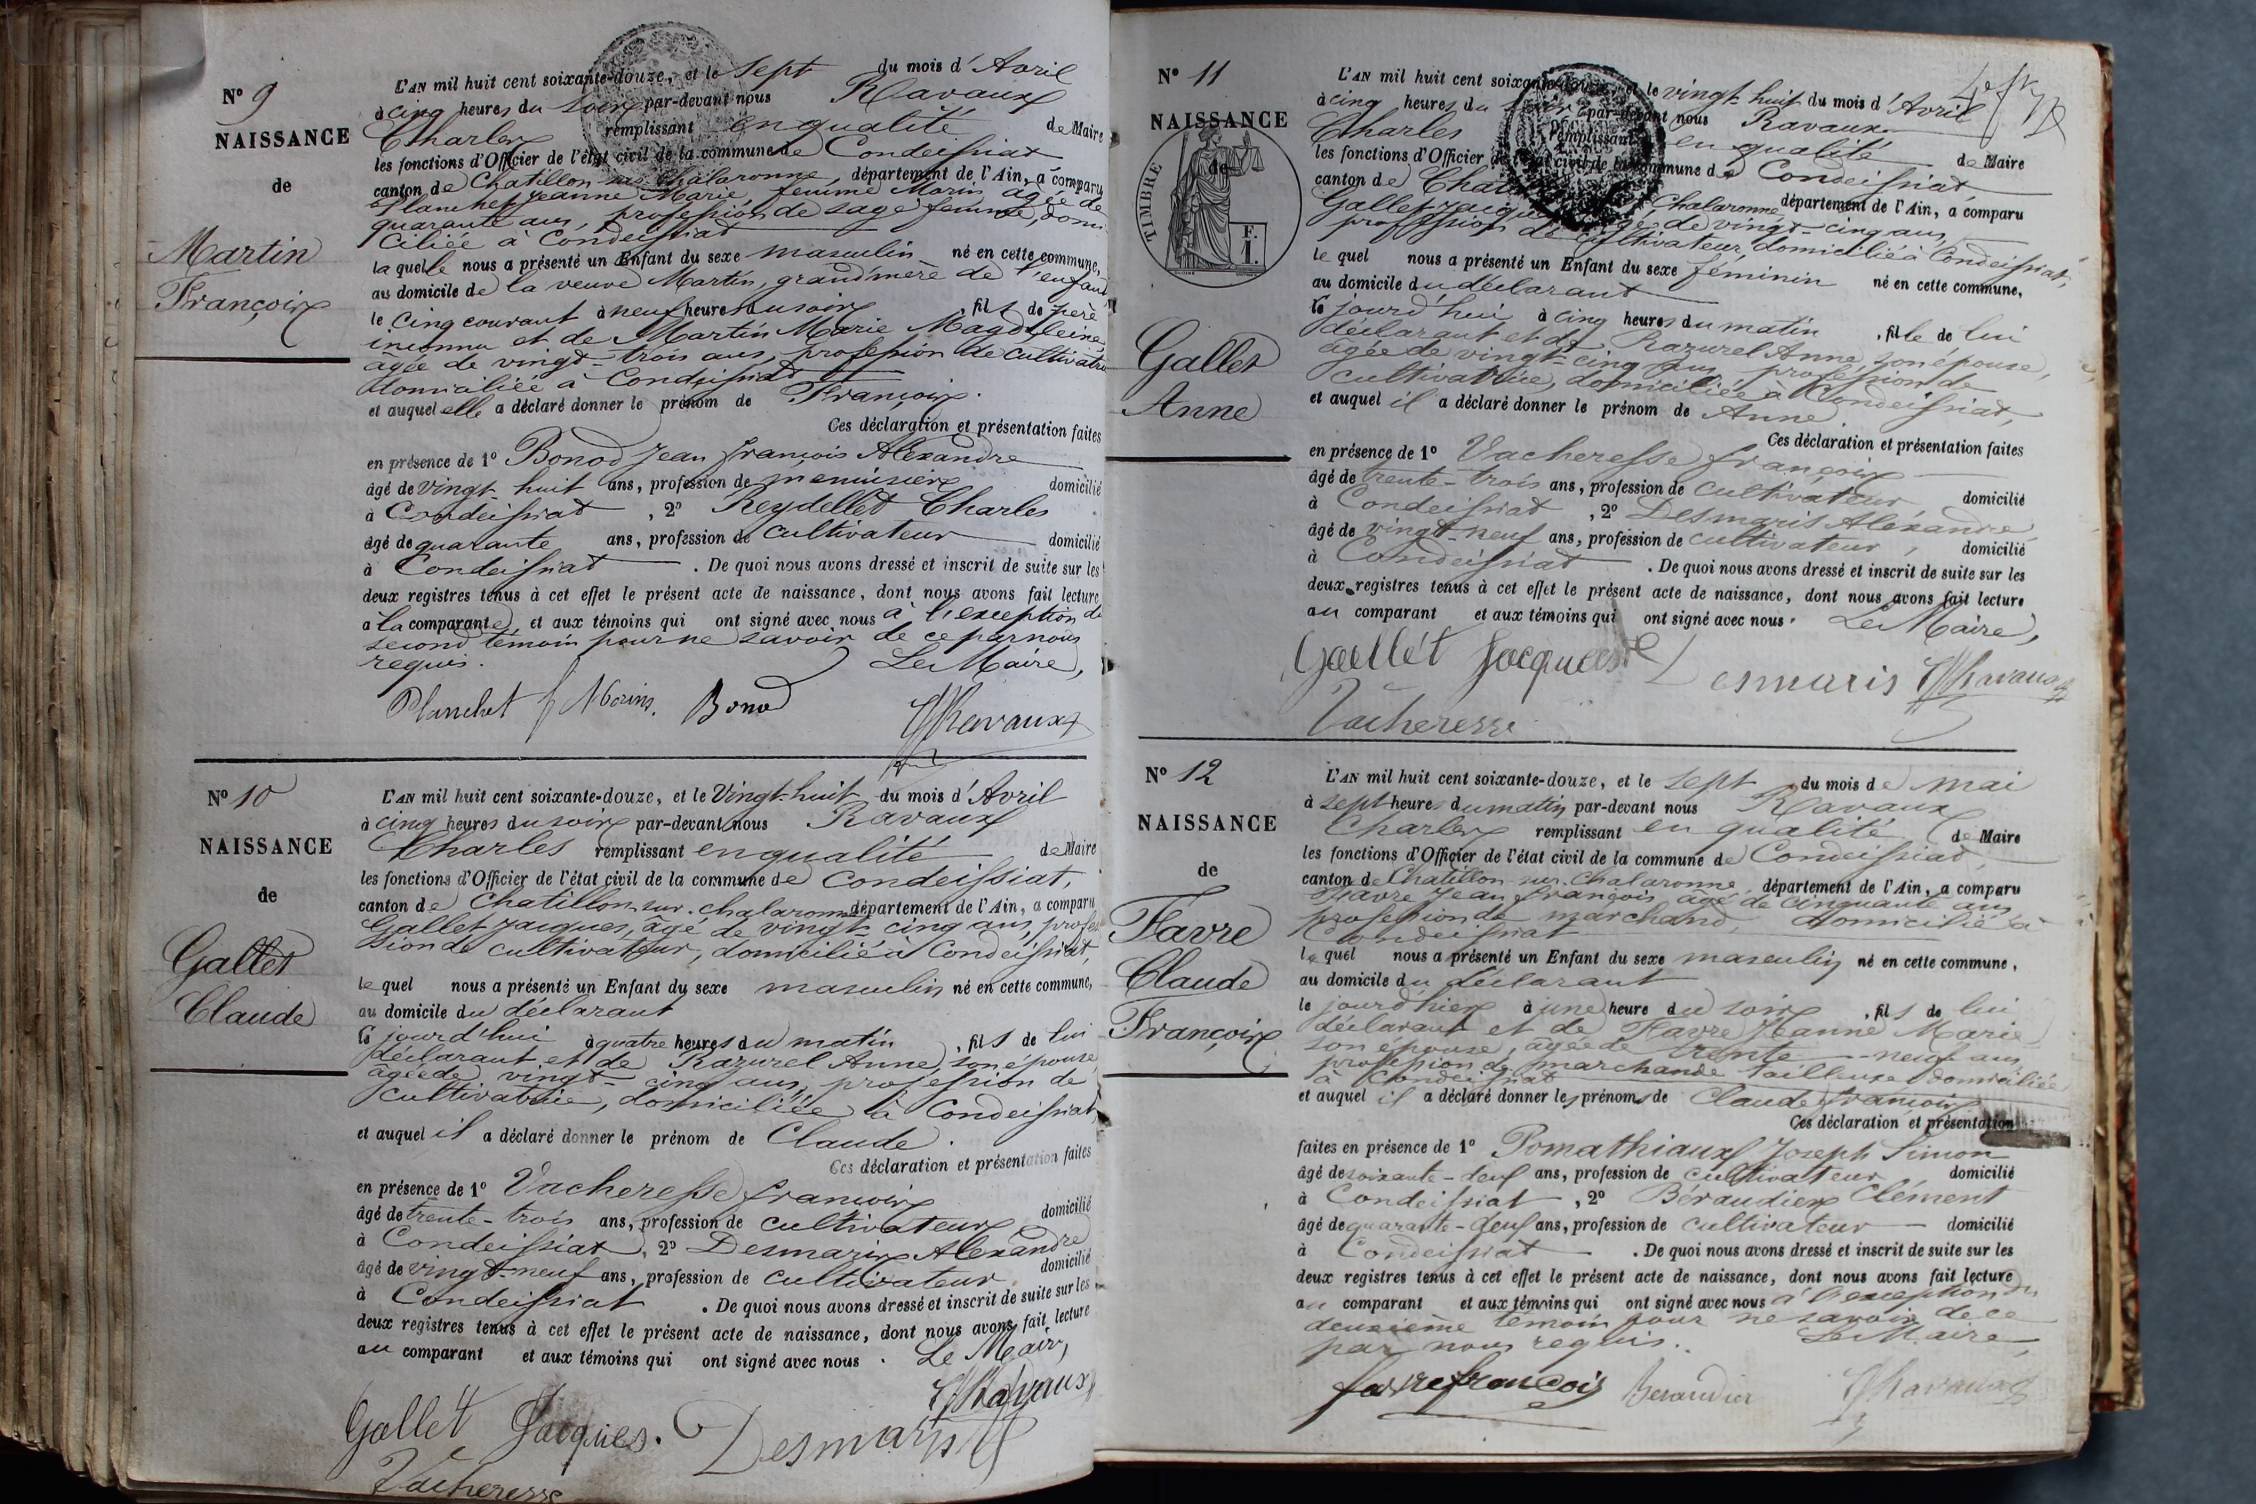 N° 9
NAISSANCE
de
Martin
François
L'AN mil huit cent soixante-douze, et le sept du mois d'Avril
à cinq heures du soir par-devant nous Ravaux
Charles remplissant en qualité de Maire
les fonctions d'Officier de l'état civil de la commune de Condeissiat
canton de Chatillon sur Chalaronne, département de l'Ain, a comparu
Planchet Jeanne Marie femme Morin âgée de
quarante ans, profession de sage femme, domi
ciliée à Condeissiat
laquelle nous a présenté un Enfant du sexe masculin né en cette commune,
au domicile de la veuve Martin, grand'mère de l'enfant
le cinq courant à neuf heures du soir, fils de père
inconnu et de Martin Marie Magdeleine
âgée de vingt-trois ans, profession de cultivatrice
domiciliée à Condeissiat
et auquel elle a déclaré donner le prénom de François.
Ces déclaration et présentation faites
en présence de 1° Bonod Jean François Alexandre
âgé de vingt-huit ans, profession de menuisier domicilié
à Condeissiat, 2° Reydellet Charles
âgé de quarante ans, profession de cultivateur domicilié
à Condeissiat. De quoi nous avons dressé et inscrit de suite sur les
deux registres tenus à cet effet le présent acte de naissance, dont nous avons fait lecture
à la comparante, et aux témoins qui ont signé avec nous à l'exception du
second témoin pour ne savoir de ce par nous
requis. Le Maire,
Planchet f Morin. Bonod Ravaux
N° 10
NAISSANCE
de
Gallet
Claude
L'AN mil huit cent soixante-douze, et le Vingt-huit du mois d'Avril
à cinq heures du soir par-devant nous Ravaux
Charles remplissant en qualité de Maire
les fonctions d'Officier de l'état civil de la commune de Condeissiat,
canton de Chatillon sur Chalaronne département de l'Ain, a comparu
Gallet Jacques, âgé de vingt-cinq ans, profes
sion de cultivateur, domicilié à Condeissiat,
lequel nous a présenté un Enfant du sexe masculin né en cette commune,
au domicile du déclarant
le jourd'hui à quatre heures du matin, fils de lui
déclarant et de Razurel Anne, son épouse,
âgée de vingt-cinq ans, profession de
cultivatrice, domiciliée à Condeissiat,
et auquel il a déclaré donner le prénom de Claude.
Ces déclaration et présentation faites
en présence de 1° Vacheresse François
âgé de trente-trois ans, profession de cultivateur domicilié
à Condeissiat, 2° Desmaris Alexandre
âgé de vingt-neuf ans, profession de cultivateur domicilié
à Condeissiat. De quoi nous avons dressé et inscrit de suite sur les
deux registres tenus à cet effet le présent acte de naissance, dont nous avons fait lecture
au comparant et aux témoins qui ont signé avec nous. Le Maire,
Ravaux
Gallet Jacques. Desmaris
Vacheresse
N° 11
NAISSANCE
de
TIMBRE
F.
1.
Gallet
Anne
L'AN mil huit cent soixante-douze, et le vingt-huit du mois d'Avril
à cinq heures du soir par-devant nous Ravaux
Charles remplissant en qualité de Maire
les fonctions d'Officier de l'état civil de la commune de Condeissiat
canton de Chatillon sur Chalaronne, département de l'Ain, a comparu
Gallet Jacques, âgé de vingt-cinq ans,
profession de cultivateur, domicilié à Condeissiat,
lequel nous a présenté un Enfant du sexe féminin né en cette commune,
au domicile du déclarant
le jourd'hui à cinq heures du matin, fille de lui
déclarant et de Razurel Anne, son épouse,
âgée de vingt-cinq ans profession de
cultivatrice, domiciliée à Condeissiat,
et auquel il a déclaré donner le prénom de Anne
Ces déclaration et présentation faites
en présence de 1° Vacheresse François
âgé de trente-trois ans, profession de cultivateur domicilié
à Condeissiat, 2° Desmaris Alexandre,
âgé de vingt-neuf ans, profession de cultivateur, domicilié
à Condeissiat. De quoi nous avons dressé et inscrit de suite sur les
deux registres tenus à cet effet le présent acte de naissance, dont nous avons fait lecture
au comparant et aux témoins qui ont signé avec nous. Le Maire,
Gallet Jacques Desmaris Ravaux
Vacheresse
N° 12
NAISSANCE
de
Favre
Claude
François
L'AN mil huit cent soixante-douze, et le sept du mois de mai
à sept heures du matin par-devant nous Ravaux
Charles remplissant en qualité de Maire
les fonctions d'Officier de l'état civil de la commune de Condeissiat,
canton de Chatillon sur Chalaronne, département de l'Ain, a comparu
Favre Jean François âgé de cinquante ans
profession de marchand, domicilié à
Condeissiat
lequel nous a présenté un Enfant du sexe masculin né en cette commune,
au domicile du déclarant
le jour d'hier à une heure du soir, fils de lui
déclarant et de Favre Jeanne Marie
son épouse, âgée de trente-neuf ans,
profession de marchande tailleuse domiciliée
à Condeissiat
et auquel il a déclaré donner les prénoms de Claude François
Ces déclaration et présentation
faites en présence de 1° Pomathiaux Joseph Simon
âgé de soixante-deux ans, profession de cultivateur domicilié
à Condeissiat, 2° Béraudier Clément
âgé de quarante-deux ans, profession de cultivateur domicilié
à Condeissiat. De quoi nous avons dressé et inscrit de suite sur les
deux registres tenus à cet effet le présent acte de naissance, dont nous avons fait lecture
au comparant et aux témoins qui ont signé avec nous à l'exception du
deuxième témoin pour ne savoir de ce
par nous requis. Le Maire,
favre francois beraudier Ravaux